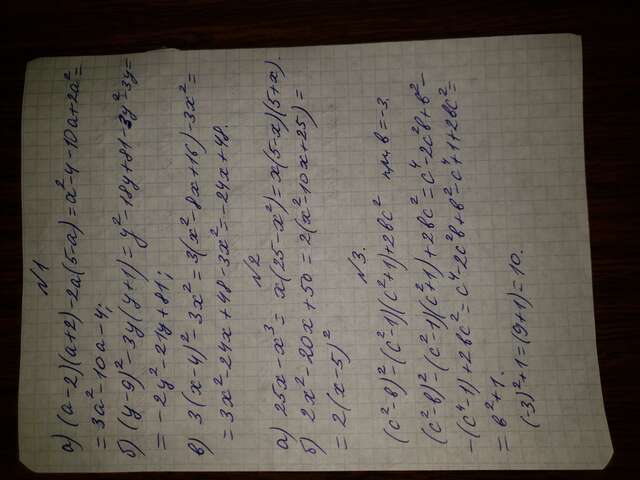 №1
а) (a-2)(a+2)-2a(5-a)=a²-4-10a+2a²=
=3a²-10a-4;
б) (y-9)²-3y(y+1)=y²-18y+81-3y²-3y=
=-2y²-21y+81;
в) 3(x-4)²-3x²=3(x²-8x+16)-3x²=
=3x²-24x+48-3x²=-24x+48.
№2
а) 25x-x³=x(25-x²)=x(5-x)(5+x).
б) 2x²-20x+50=2(x²-10x+25)=
=2(x-5)²
№3.
(c²-b)²-(c²-1)(c²+1)+2bc² при b=-3,
(c²-b)²-(c²-1)(c²+1)+2bc²=c⁴-2c²b+b²-
-(c⁴-1)+2bc²=c⁴-2c²b+b²-c⁴+1+2bc²=
=b²+1.
(-3)²+1=(9+1)=10.